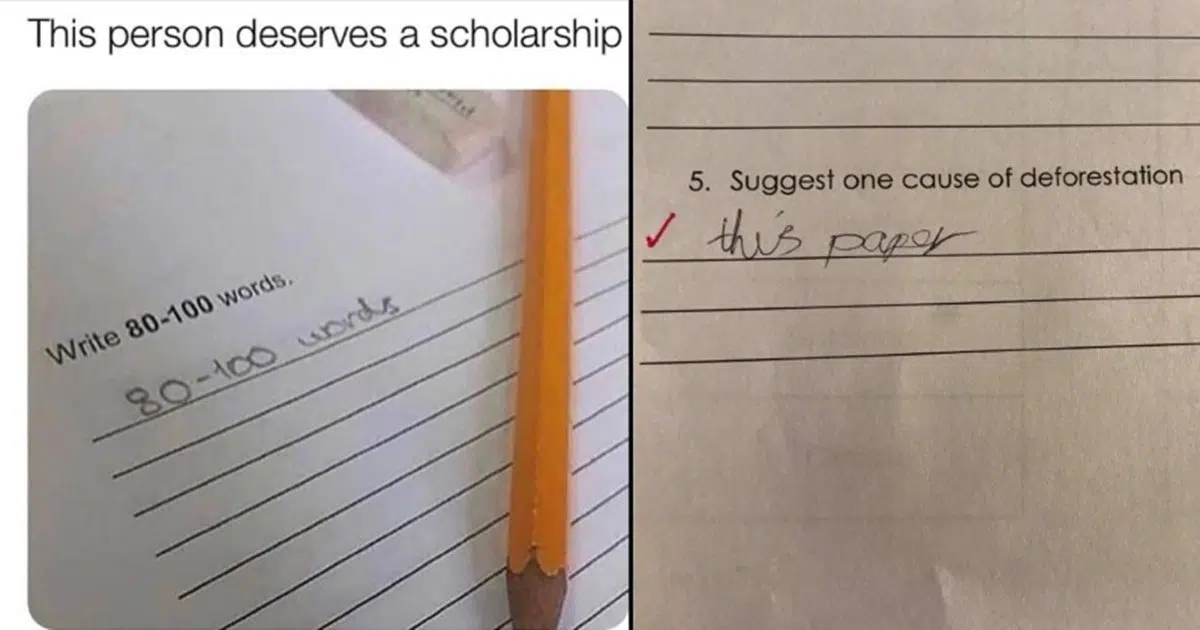 This person deserves a scholarship
Write 80-100 words.
80-100 words
5. Suggest one cause of deforestation
✓ this paper